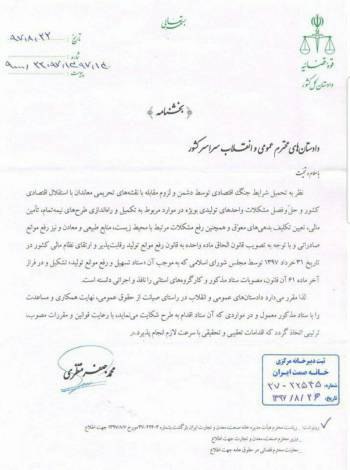 بسمه تعالی
قوه قضائیه
دادستان کل کشور
تاریخ: ۹۷٫۸٫۲۲
شماره:
پیوست:
﴿بخشنامه﴾
دادستان‌های محترم عمومی و انقلاب سراسر کشور
با سلام و تحیت
نظر به تحمیل شرایط جنگ اقتصادی توسط دشمن و لزوم مقابله با نقشه‌های تحریمی معاندان با استقلال اقتصادی
کشور و حل و فصل مشکلات واحدهای تولیدی بویژه در موارد مربوط به تکمیل و راه‌اندازی طرح‌های نیمه‌تمام، تأمین
مالی، تعیین تکلیف بدهی‌های معوق و همچنین رفع مشکلات مرتبط با محیط زیست، منابع طبیعی و معادن و نیز رفع موانع
صادراتی و با توجه به تصویب قانون الحاق ماده واحده به قانون رفع موانع تولید رقابت‌پذیر و ارتقای نظام مالی کشور در
تاریخ ۳۱ خرداد ۱۳۹۷ توسط مجلس شورای اسلامی که به موجب آن «ستاد تسهیل و رفع موانع تولید» تشکیل و در فراز
آخر ماده ۶۱ آن قانون، مصوبات ستاد مذکور و کارگروه‌های استانی را نافذ و اجرائی دانسته است.
لذا مقرر می‌دارد دادستان‌های عمومی و انقلاب در راستای صیانت از حقوق عمومی، نهایت همکاری و مساعدت
را با ستاد مذکور معمول و در مواردی که آن ستاد اقدام به طرح شکایت می‌نمایند، با رعایت قوانین و مقررات مصوب،
ترتیبی اتخاذ گردد که اقدامات تعقیبی و تحقیقی با سرعت لازم انجام پذیرد.
محمد جعفر منتظری
ثبت دبیرخانه مرکزی
خانه صنعت ایران
شماره: ۲۲۵۴۵-۳۷
تاریخ: ۱۳۹۷/۸/۲۶
رونوشت:
وزیر محترم صنعت، معدن و تجارت جهت اطلاع